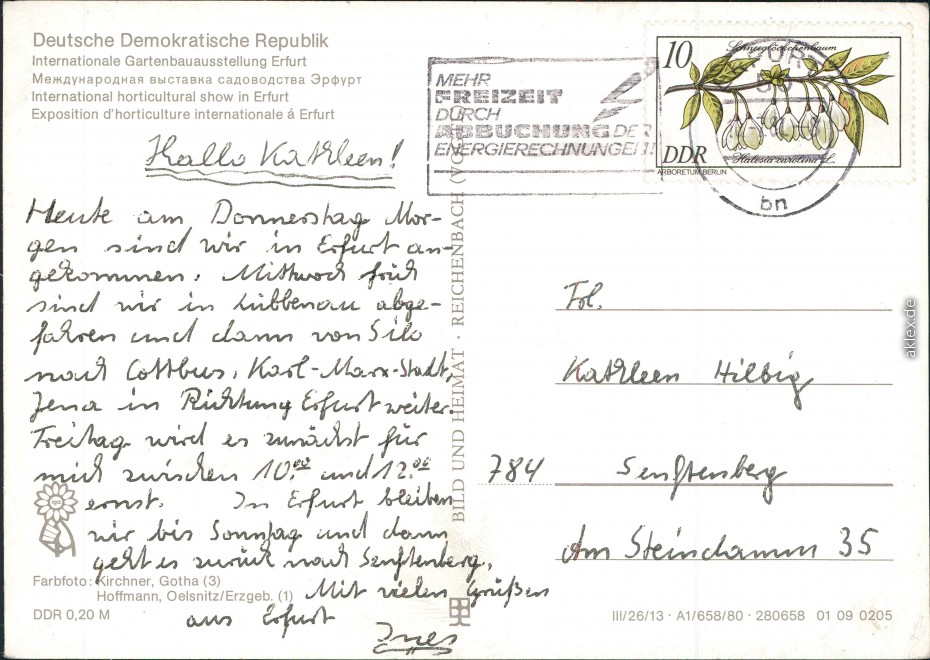 Deutsche Demokratische Republik
Internationale Gartenbauausstellung Erfurt
Международная выставка садоводства Эрфурт
International horticultural show in Erfurt
Exposition d'horticulture internationale á Erfurt
MEHR
FREIZEIT
DURCH
ABBUCHUNG DER
ENERGIERECHNUNGEN!
10
Schneeglöckchenbaum
DDR
Halesia carolina L.
ARBORETUM BERLIN
bn
Hallo Kathleen!
Heute am Donnerstag Mor-
gen sind wir in Erfurt an-
gekommen. Mittwoch früh
sind wir in Lübbenau abge-
fahren und dann von Silo
nach Cottbus, Karl-Marx-Stadt,
Jena in Richtung Erfurt weiter.
Freitag wird es zunächst für
mich zwischen 10.00 und 12.00
ernst. In Erfurt bleiben
wir bis Sonntag und dann
geht es zurück nach Senftenberg.
Mit vielen Grüßen
aus Erfurt
Ines
Farbfoto: Kirchner, Gotha (3)
Hoffmann, Oelsnitz/Erzgeb. (1)
DDR 0,20 M
BILD UND HEIMAT · REICHENBACH (VOGTL
Frl.
Kathleen Hilbig
784 Senftenberg
Am Steindamm 35
III/26/13 · A1/658/80 · 280658 01 09 0205
aklex.de